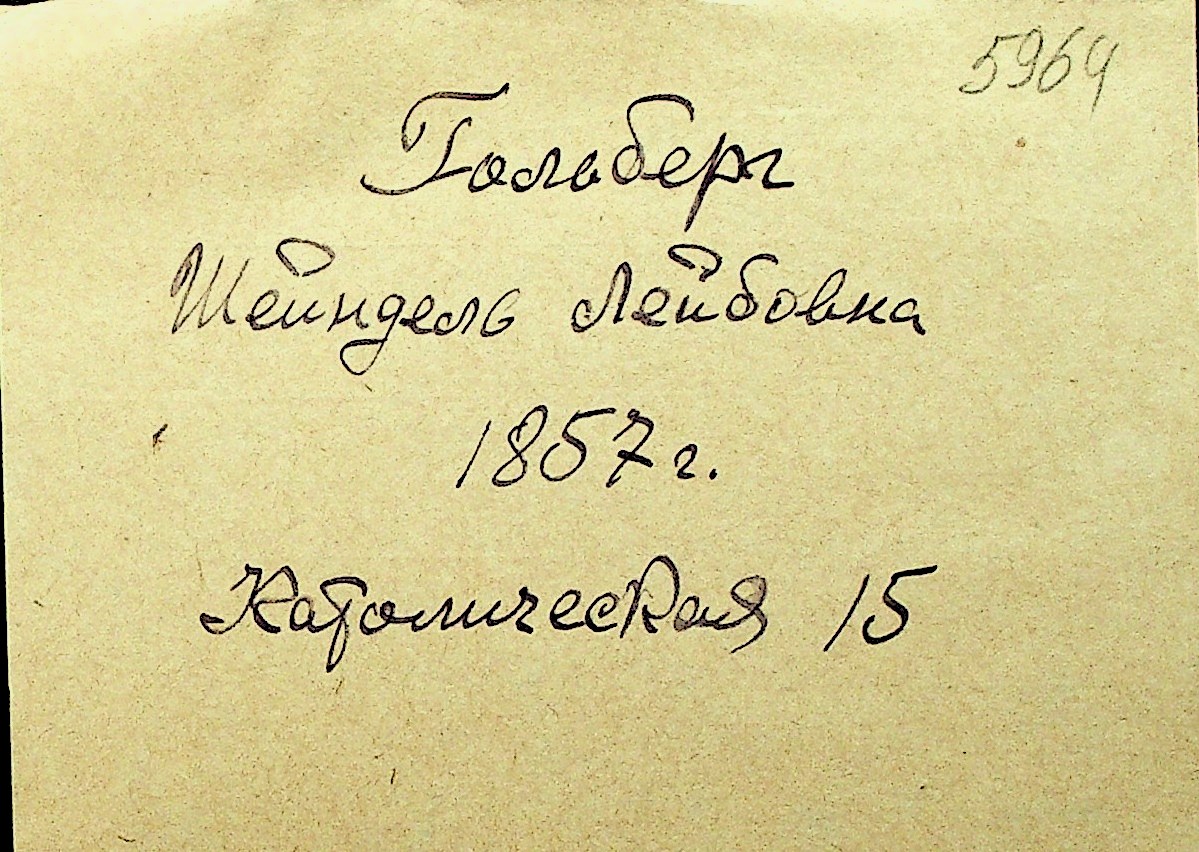 5964
Гольберг
Шейндель Лейбовна
1857 г.
Католическая 15